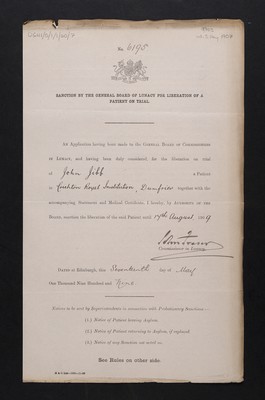 No. 6195
SANCTION BY THE GENERAL BOARD OF LUNACY FOR LIBERATION OF A
PATIENT ON TRIAL.
An Application having been made to the General Board of Commissioners
in Lunacy, and having been duly considered, for the liberation on trial
of John Gibb a Patient
in Crichton Royal Institution, Dumfries together with the
accompanying Statement and Medical Certificate, I hereby, by Authority of the
Board, sanction the liberation of the said Patient until 17th August 1909
Commissioner in Lunacy.
Dated at Edinburgh, this Seventeenth day of May
One Thousand Nine Hundred and Nine.
Notices to be sent by Superintendents in connection with Probationary Liberations—
(1.) Notice of Patient leaving Asylum.
(2.) Notice of Patient returning to Asylum, if replaced
(3.) Notice of any
See Rules on other side.